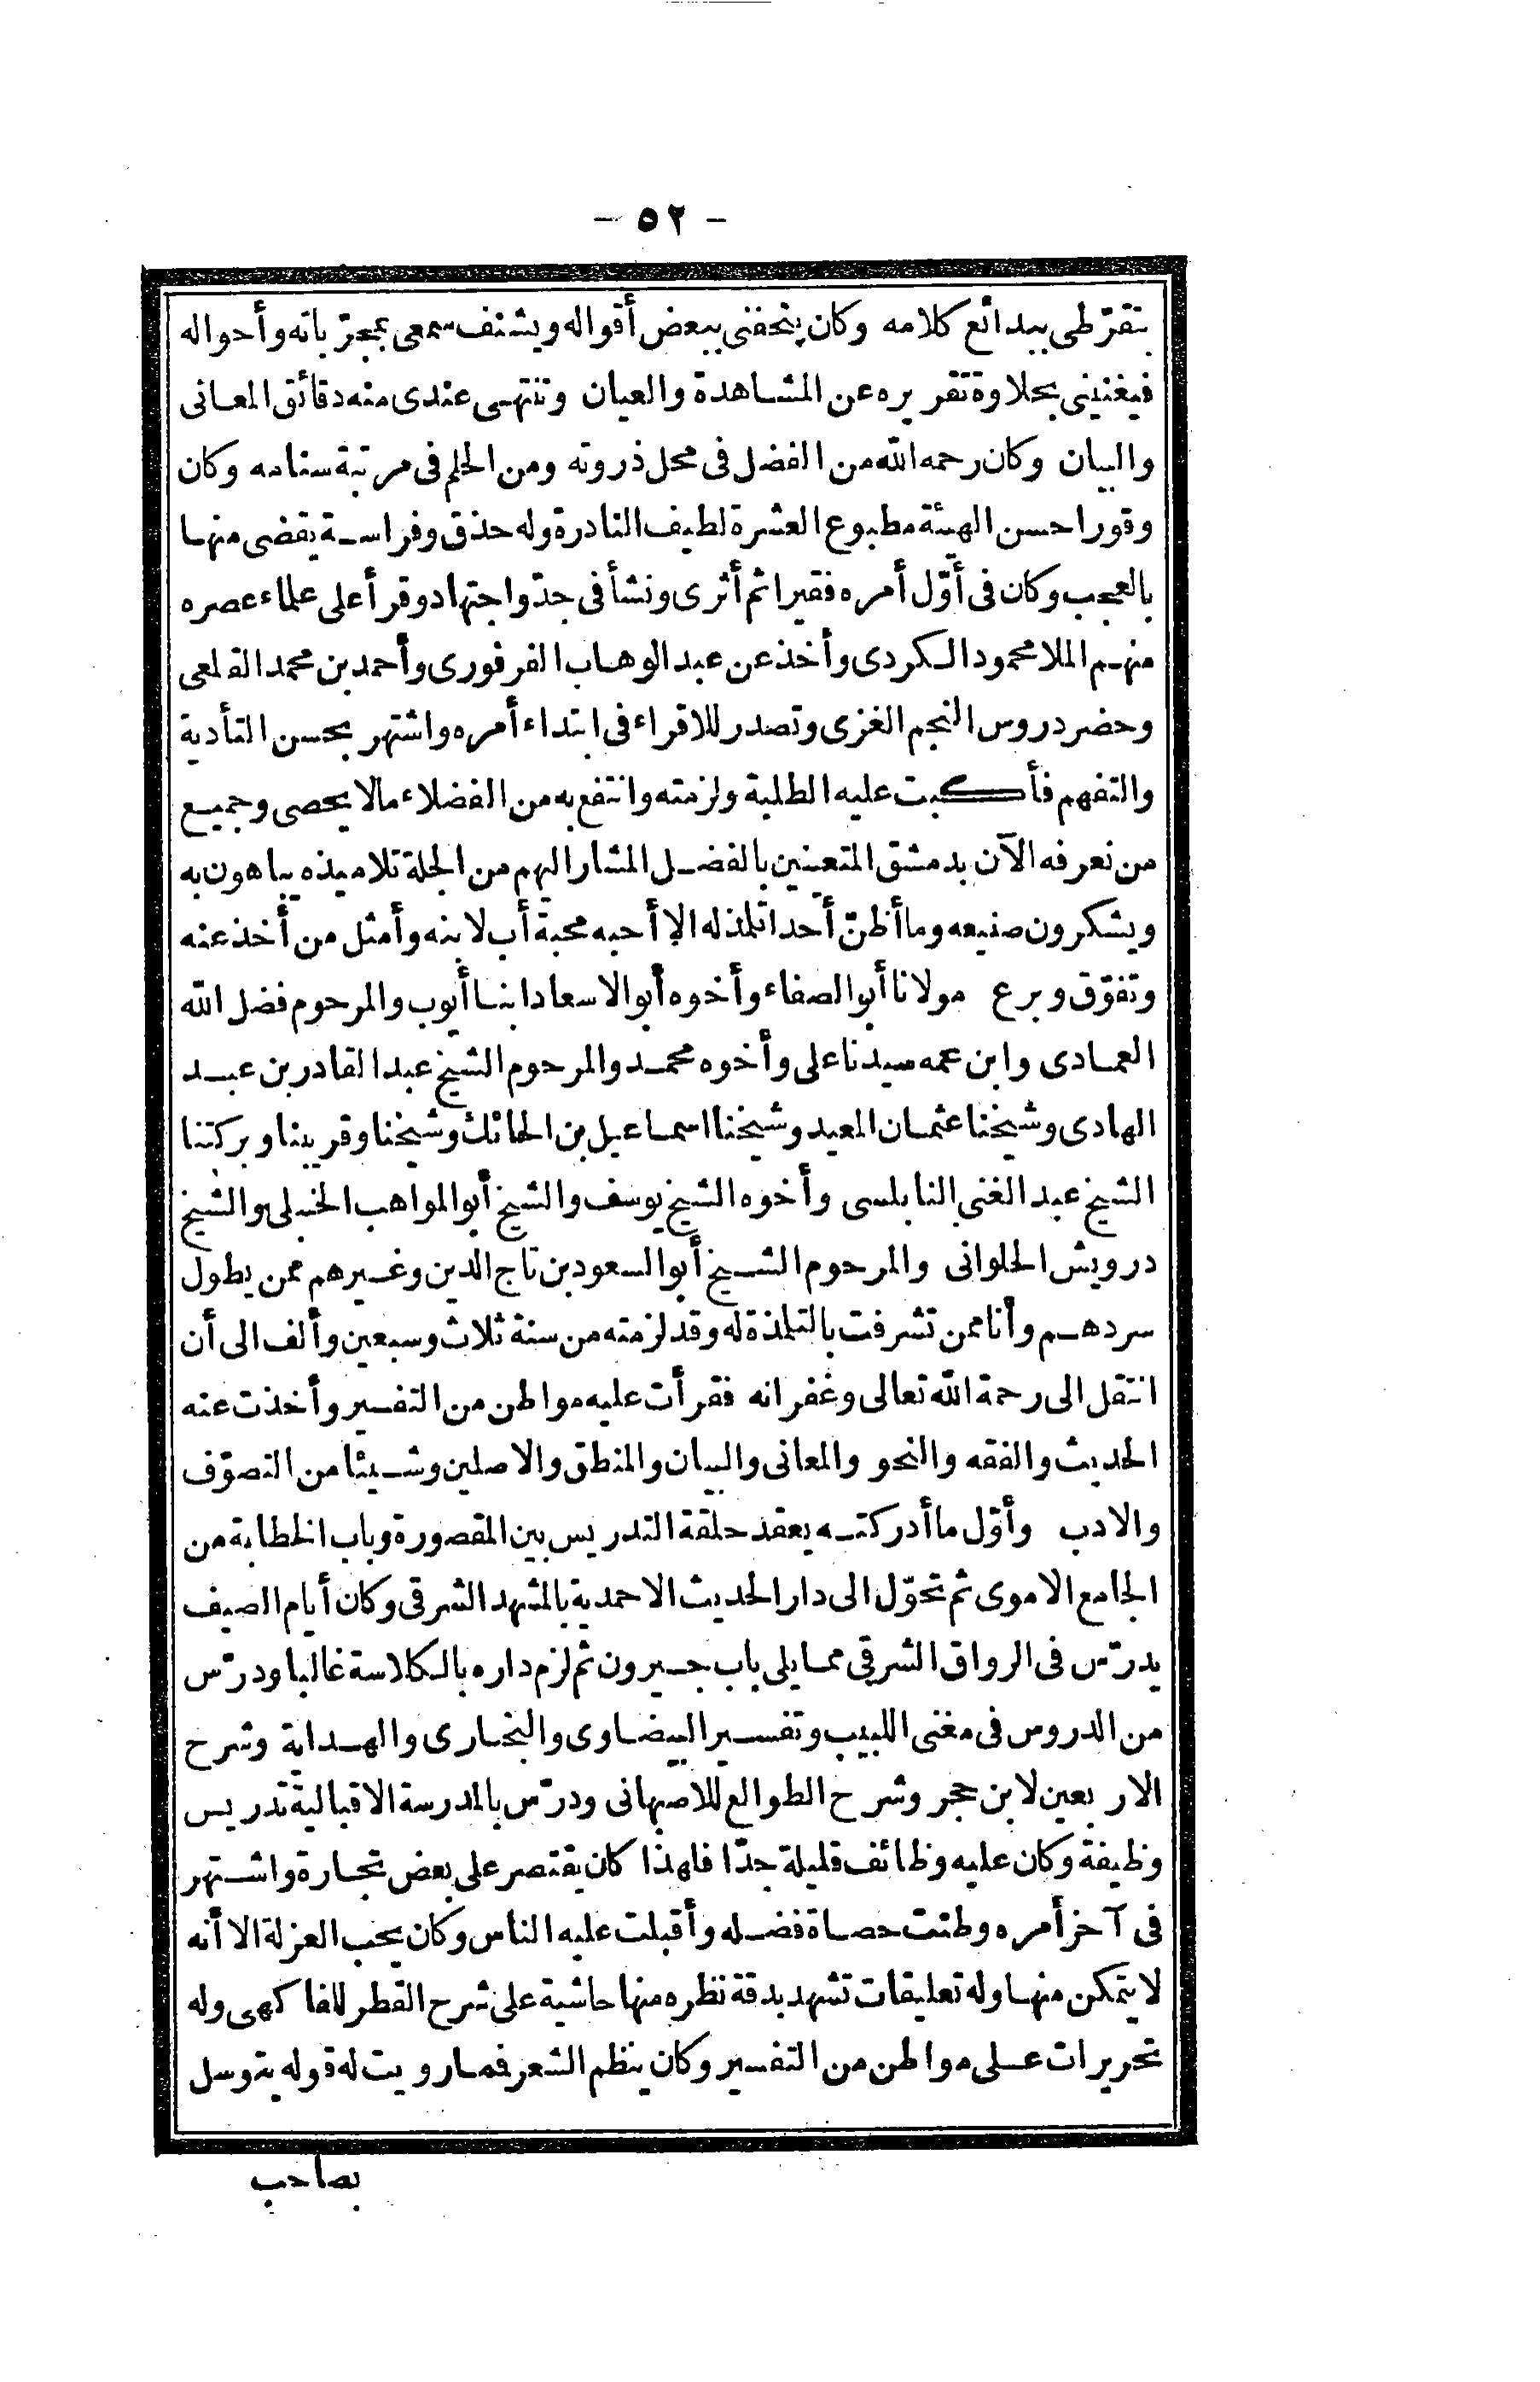 - ٥٢ -
يقرّطى ببدائع كلامه وكان يتحفنى ببعض أقواله ويشنف سمعى بمجرّباته وأحواله
فيغنينى بحلاوة تقريره عن المشاهدة والعيان وتنتهى عندى منه دقائق المعانى
والبيان وكان رحمه الله من الفضل فى محل ذروته ومن الحلم فى مرتبة سنامه وكان
وقورا حسن الهيئة مطبوع العشرة لطيف النادرة وله حذق وفراسة يقضى منها
بالعجب وكان فى أوّل أمره فقيرا ثم أثرى ونشأ فى جدّ واجتهاد وقرأ على علماء عصره
منهم الملا محمود الكردى وأخذ عن عبد الوهاب الفرفورى وأحمد بن محمد القلعى
وحضر دروس النجم الغزى وتصدر للاقراء فى ابتداء أمره واشتهر بحسن التأدية
والتفهم فأكبت عليه الطلبة ولزمته وانتفع به من الفضلاء مالا يحصى وجميع
من نعرفه الآن بدمشق المتعينين بالفضل المشار اليهم من الجلة تلاميذه يباهون به
ويشكرون صنيعه وما أظنّ أحدا تلمذ له الا أحبه محبة أب لابنه وأمثل من أخذ عنه
وتفوّق وبرع مولانا أبو الصفاء وأخوه أبو الاسعاد ابنا أيوب والمرحوم فضل الله
العمادى وابن عمه سيدنا على وأخوه محمد والمرحوم الشيخ عبد القادر بن عبد
الهادى وشيخنا عثمان المعيد وشيخنا اسماعيل بن الحائك وشيخنا وقريبنا وبركتنا
الشيخ عبد الغنى النابلسى وأخوه الشيخ يوسف والشيخ أبو المواهب الحنبلى والشيخ
درويش الحلوانى والمرحوم الشيخ أبو السعود بن تاج الدين وغيرهم ممن يطول
سردهم وأنا ممن تشرفت بالتلمذة له وقد لزمته من سنة ثلاث وسبعين وألف الى أن
انتقل الى رحمة الله تعالى وغفرانه فقرأت عليه مواطن من التفسير وأخذت عنه
الحديث والفقه والنحو والمعانى والبيان والمنطق والاصلين وشيئا من التصوّف
والادب وأوّل ما أدركته يعقد حلقة التدريس بين المقصورة وباب الخطابة من
الجامع الاموى ثم تحوّل الى دار الحديث الاحمدية بالمشهد الشرقى وكان أيام الصيف
يدرّس فى الرواق الشرقى مما يلى باب جيرون ثم لزم داره بالكلاسة غالبا ودرّس
من الدروس فى مغنى اللبيب وتفسير البيضاوى والبخارى والهداية وشرح
الاربعين لابن حجر وشرح الطوالع للاصبهانى ودرّس بالمدرسة الاقبالية تدريس
وظيفة وكان عليه وظائف قليلة جدّا فلهذا كان يقتصر على بعض تجارة واشتهر
فى آخر أمره وطنت حصاة فضله وأقبلت عليه الناس وكان يحب العزلة الا أنه
لا يتمكن منها وله تعليقات تشهد بدقة نظره منها حاشية على شرح القطر للفاكهى وله
تحريرات على مواطن من التفسير وكان ينظم الشعر فمما رويت له قوله يتوسل
بصاحب